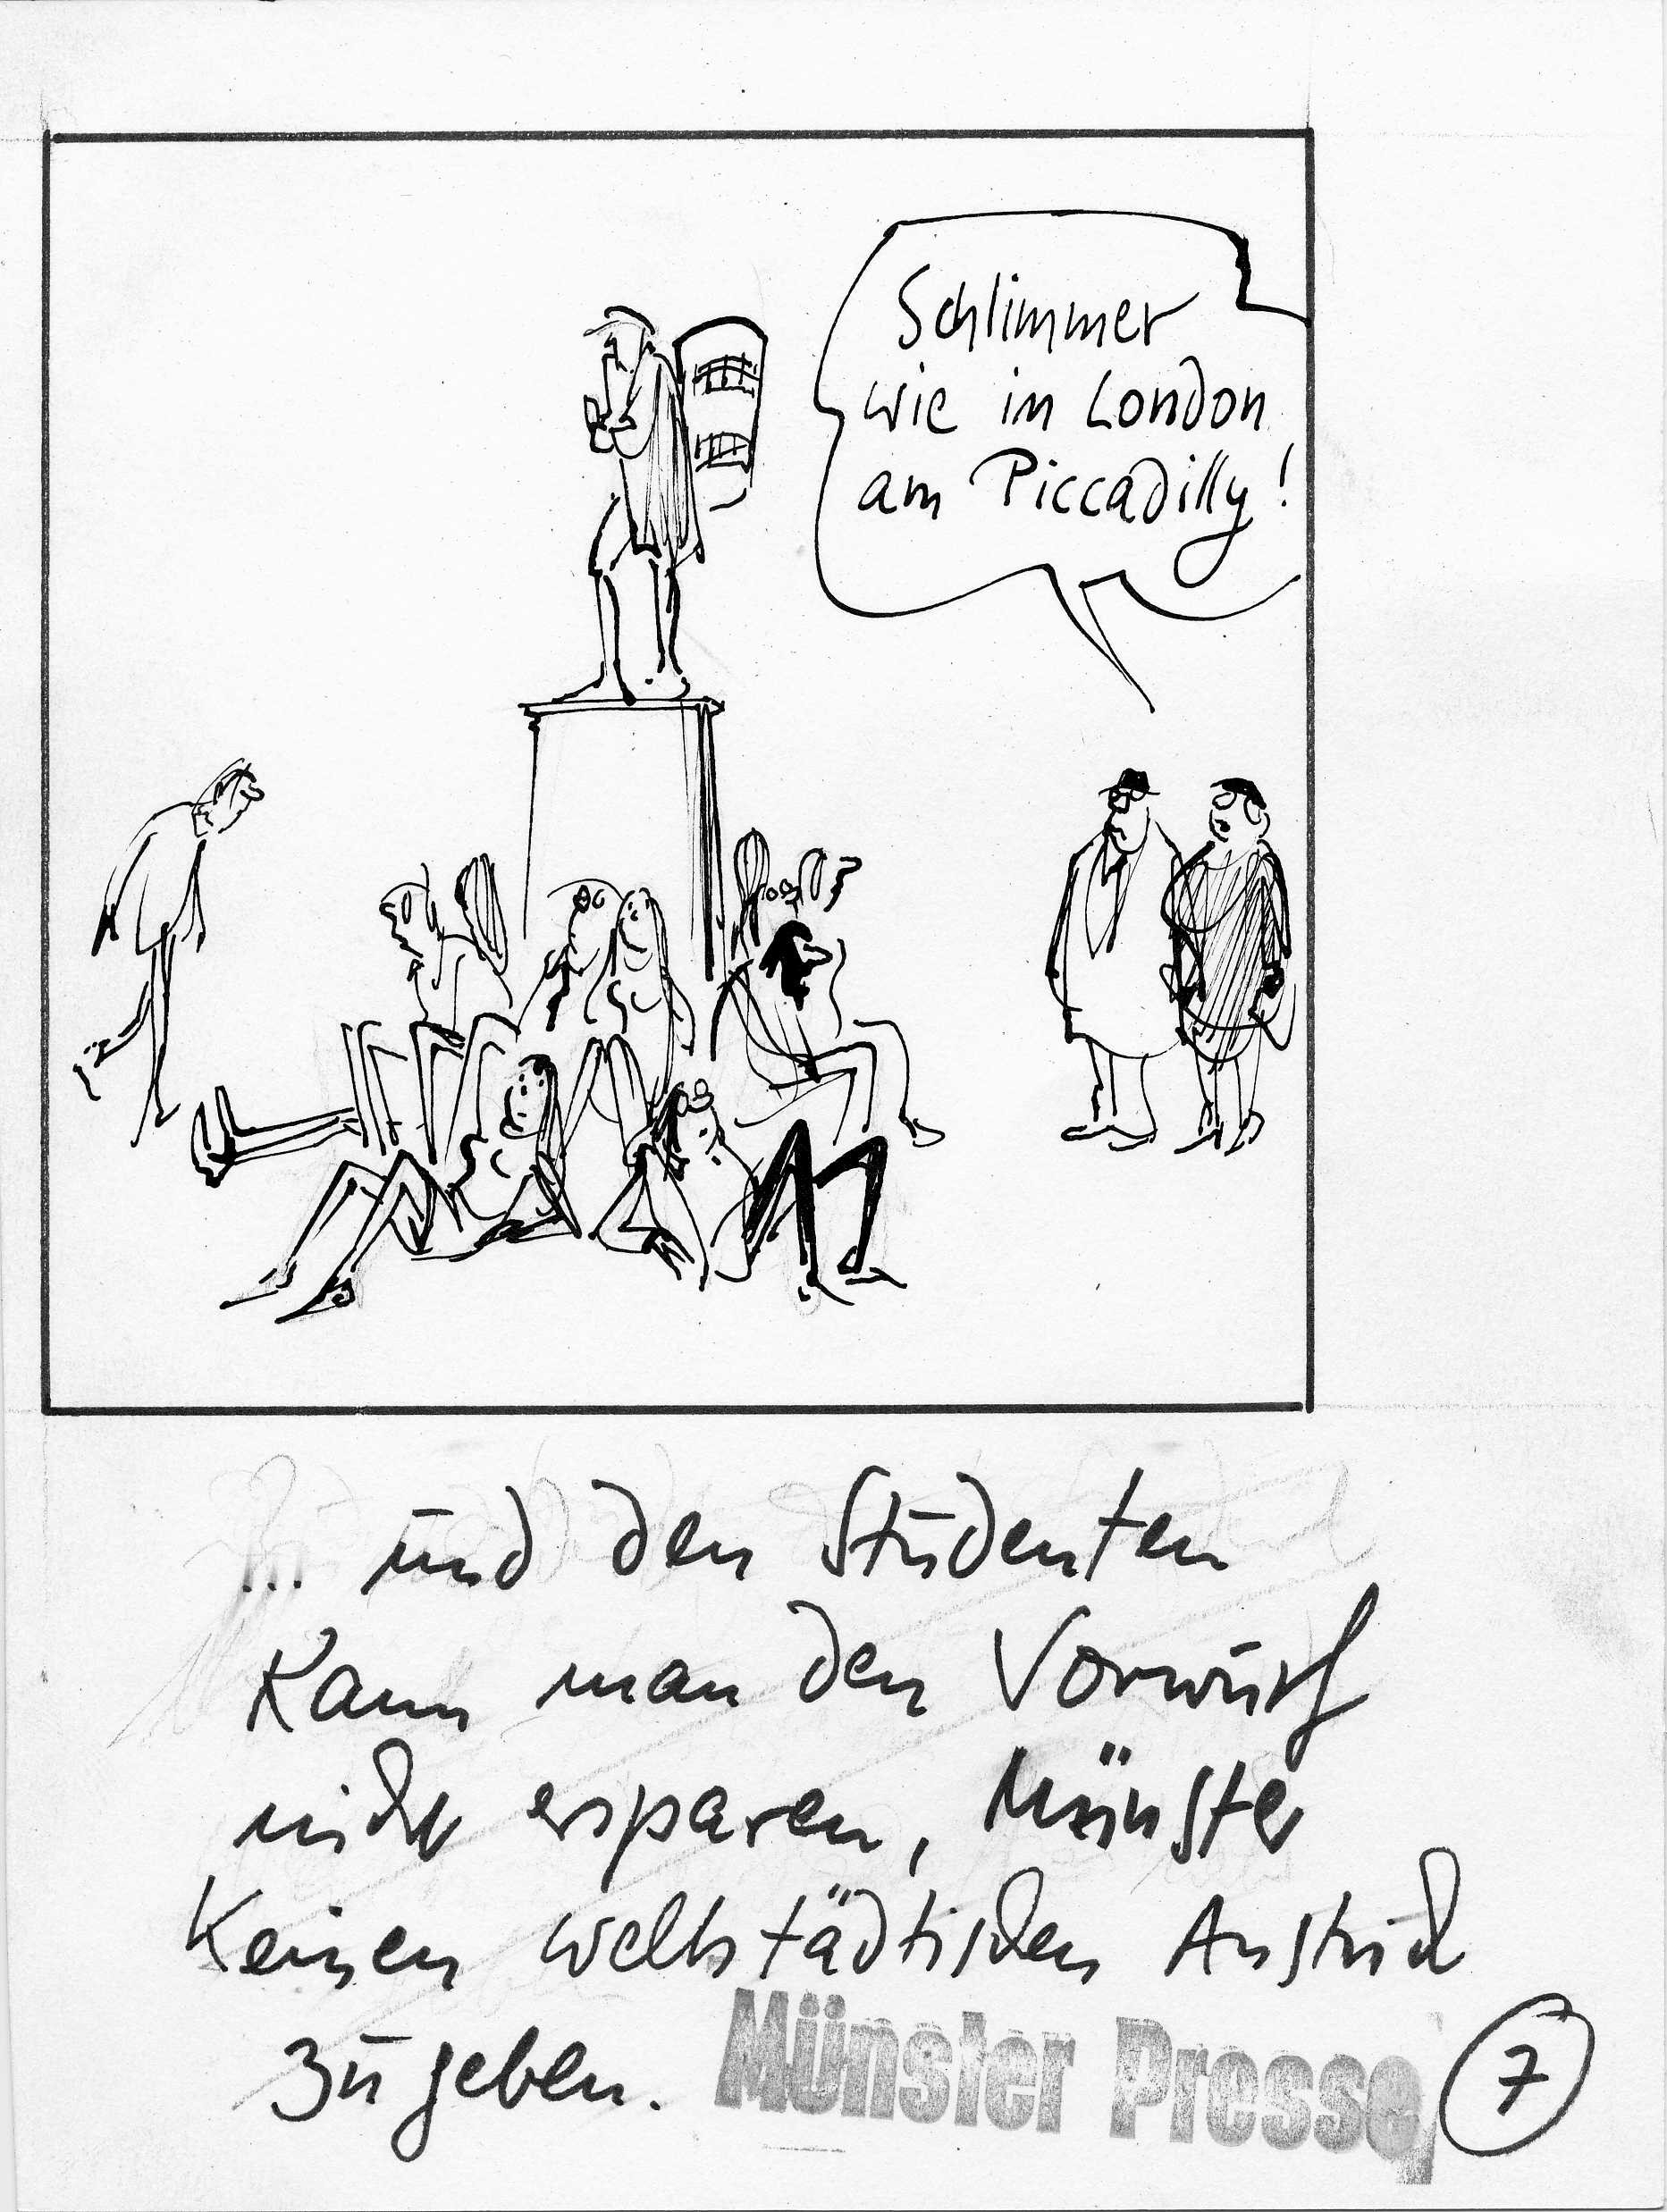 Schlimmer
wie in London
am Piccadilly!
... und den Studenten
kann man den Vorwurf
nicht ersparen, Münster
keinen weltstädtischen Anstrich
zu geben.
Münster Presse
7